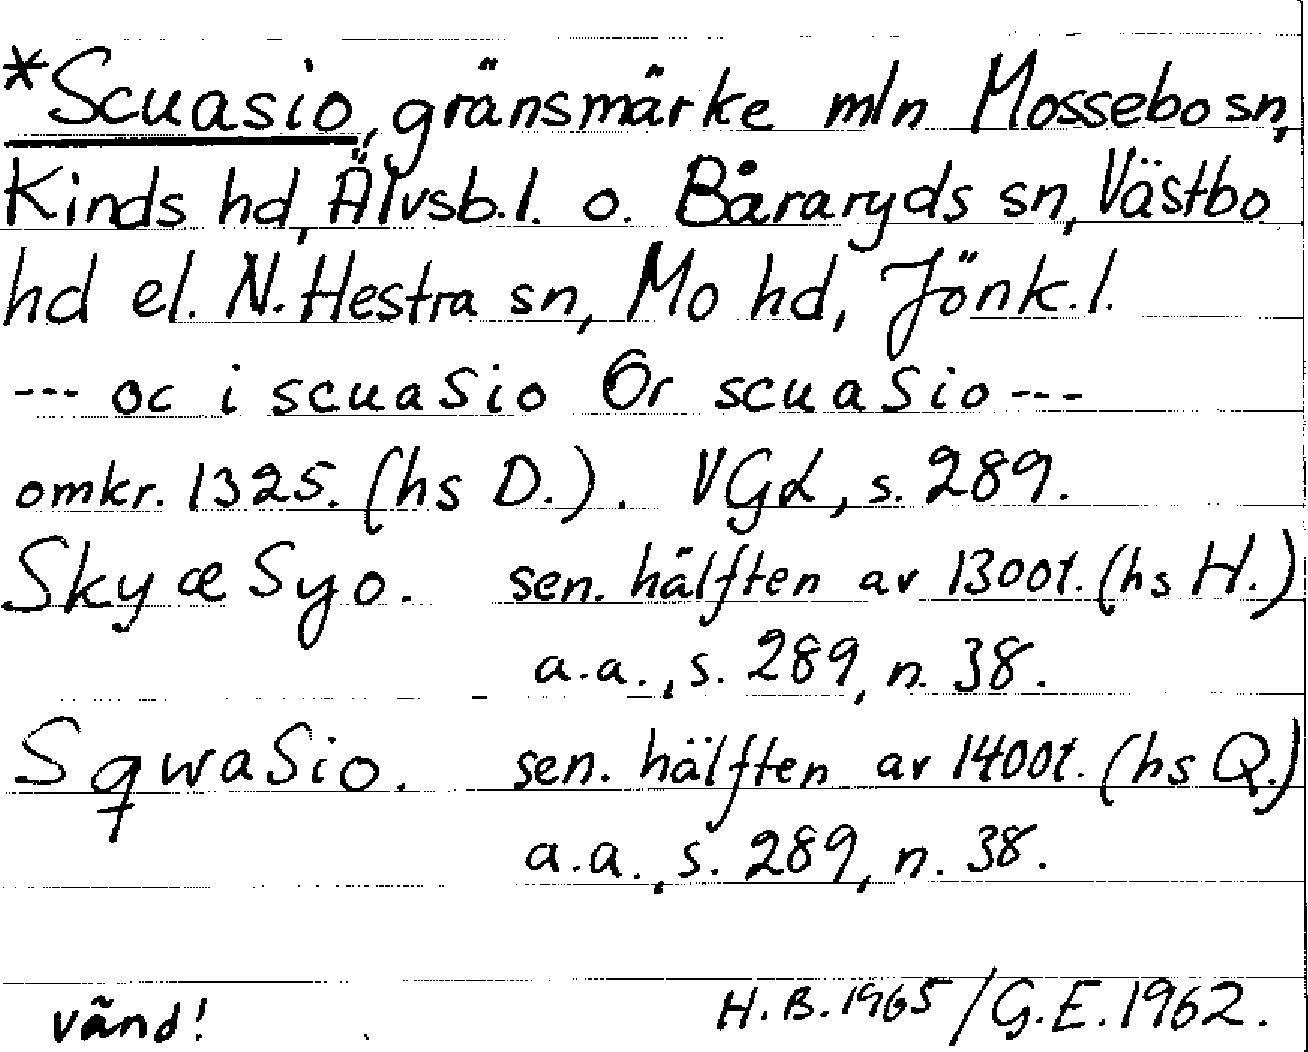 *Scuasio, gränsmärke mln Mossebo sn,
Kinds hd, Älvsb.l. o. Båraryds sn, Västbo
hd el. N. Hestra sn, Mo hd, Jönk.l.
--- oc i scuaSio Or scuaSio ---
omkr. 1325. (hs D.). VGL, s. 289.
SkyæSyo. sen. hälften av 1300t. (hs H.)
a.a., s. 289, n. 38.
SqwaSio. sen. hälften av 1400t. (hs Q.)
a.a., s. 289, n. 38.
vänd! H.B. 1965 / G.E. 1962.